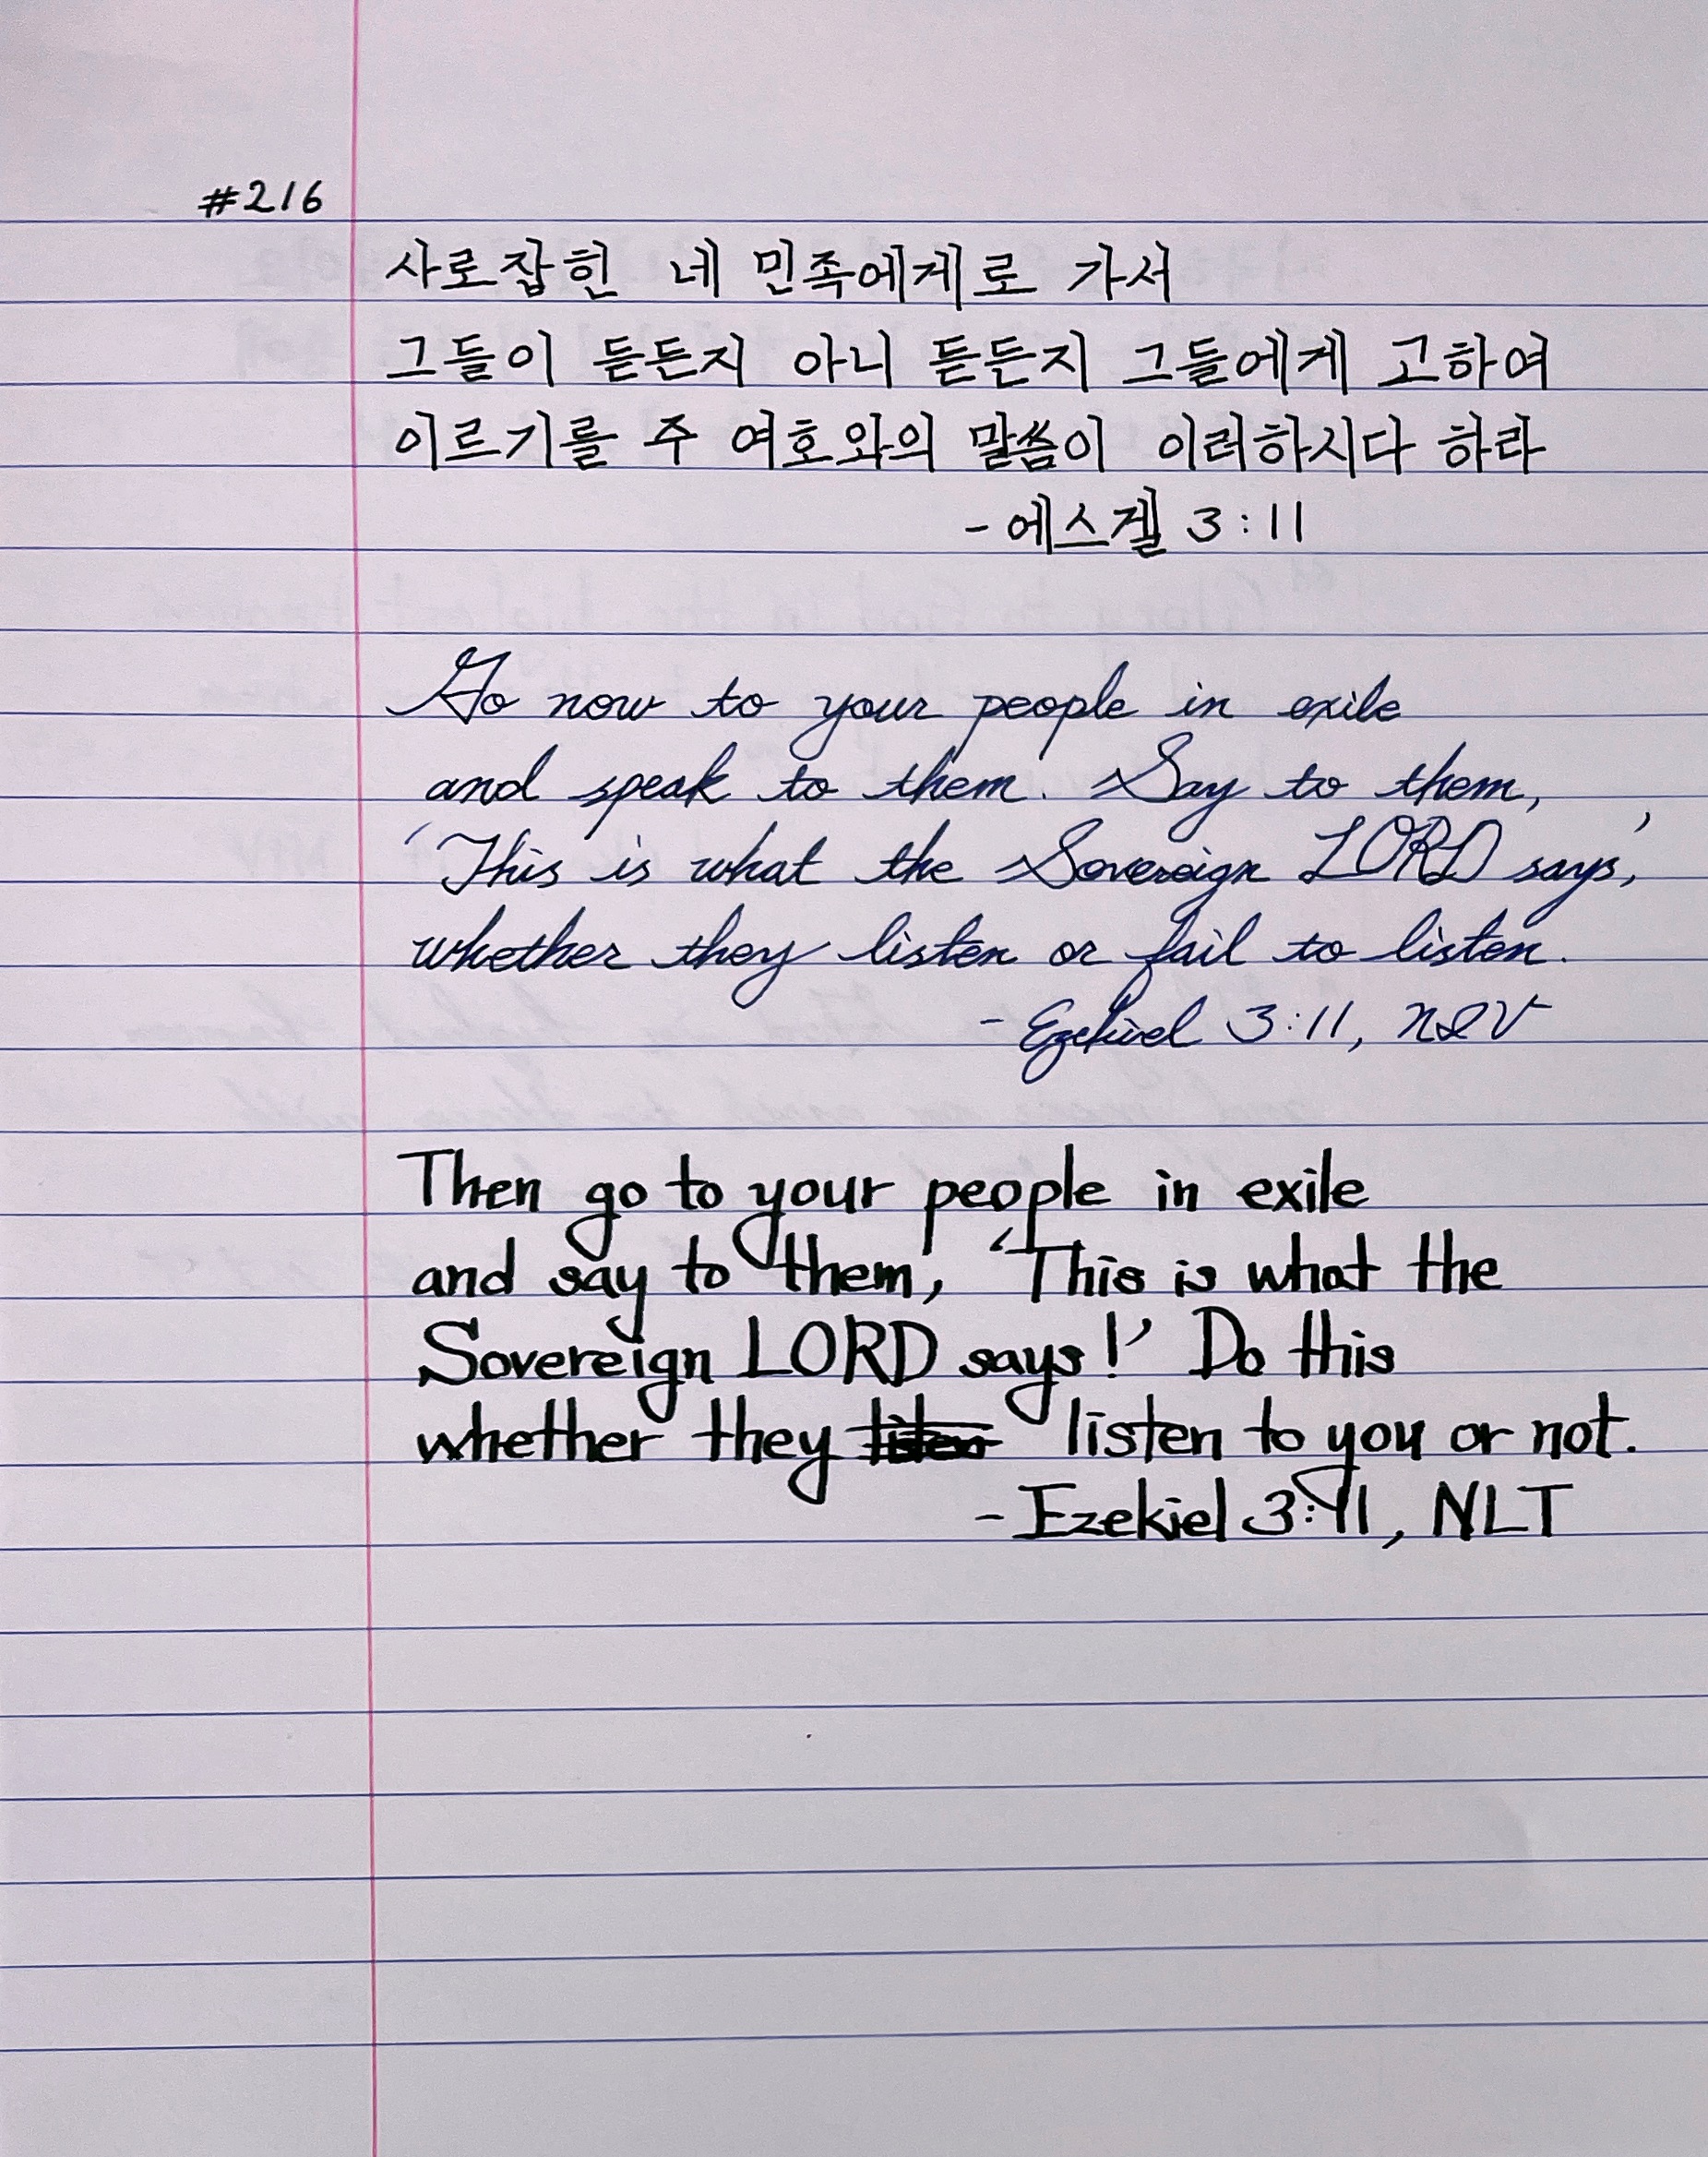 #216
사로잡힌 네 민족에게로 가서
그들이 듣든지 아니 듣든지 그들에게 고하여
이르기를 주 여호와의 말씀이 이러하시다 하라
- 에스겔 3:11
Go now to your people in exile
and speak to them. Say to them,
'This is what the Sovereign LORD says,'
whether they listen or fail to listen.
- Ezekiel 3:11, NIV
Then go to your people in exile
and say to them, 'This is what the
Sovereign LORD says!' Do this
whether they listen to you or not.
- Ezekiel 3:11, NLT